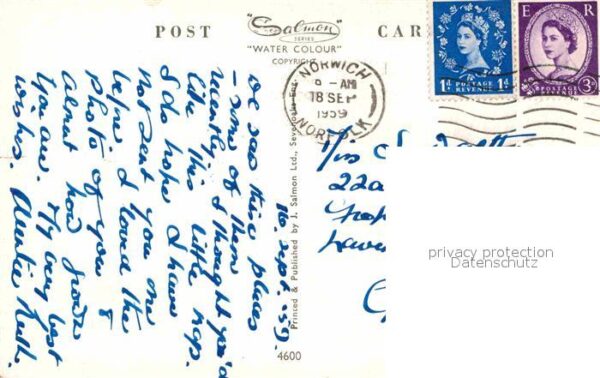 POST CARD
"Salmon
SERIES
"WATER COLOUR"
COPYRIGHT
NORWICH
9 - AM
18 SEP
1959
NORFOLK
1D POSTAGE REVENUE 1D
E R
POSTAGE REVENUE 3D
16. Sept. 59.
We saw these places
- some of them
recently & thought you'd
like this little snap.
I do hope I have
not sent you one
before. I loved the
photo of you &
about how grown
you are. My very best
wishes. Auntie Ruth.
Printed & Published by J. Salmon Ltd., Sevenoaks
4600
Miss
22a
privacy protection
Datenschutz